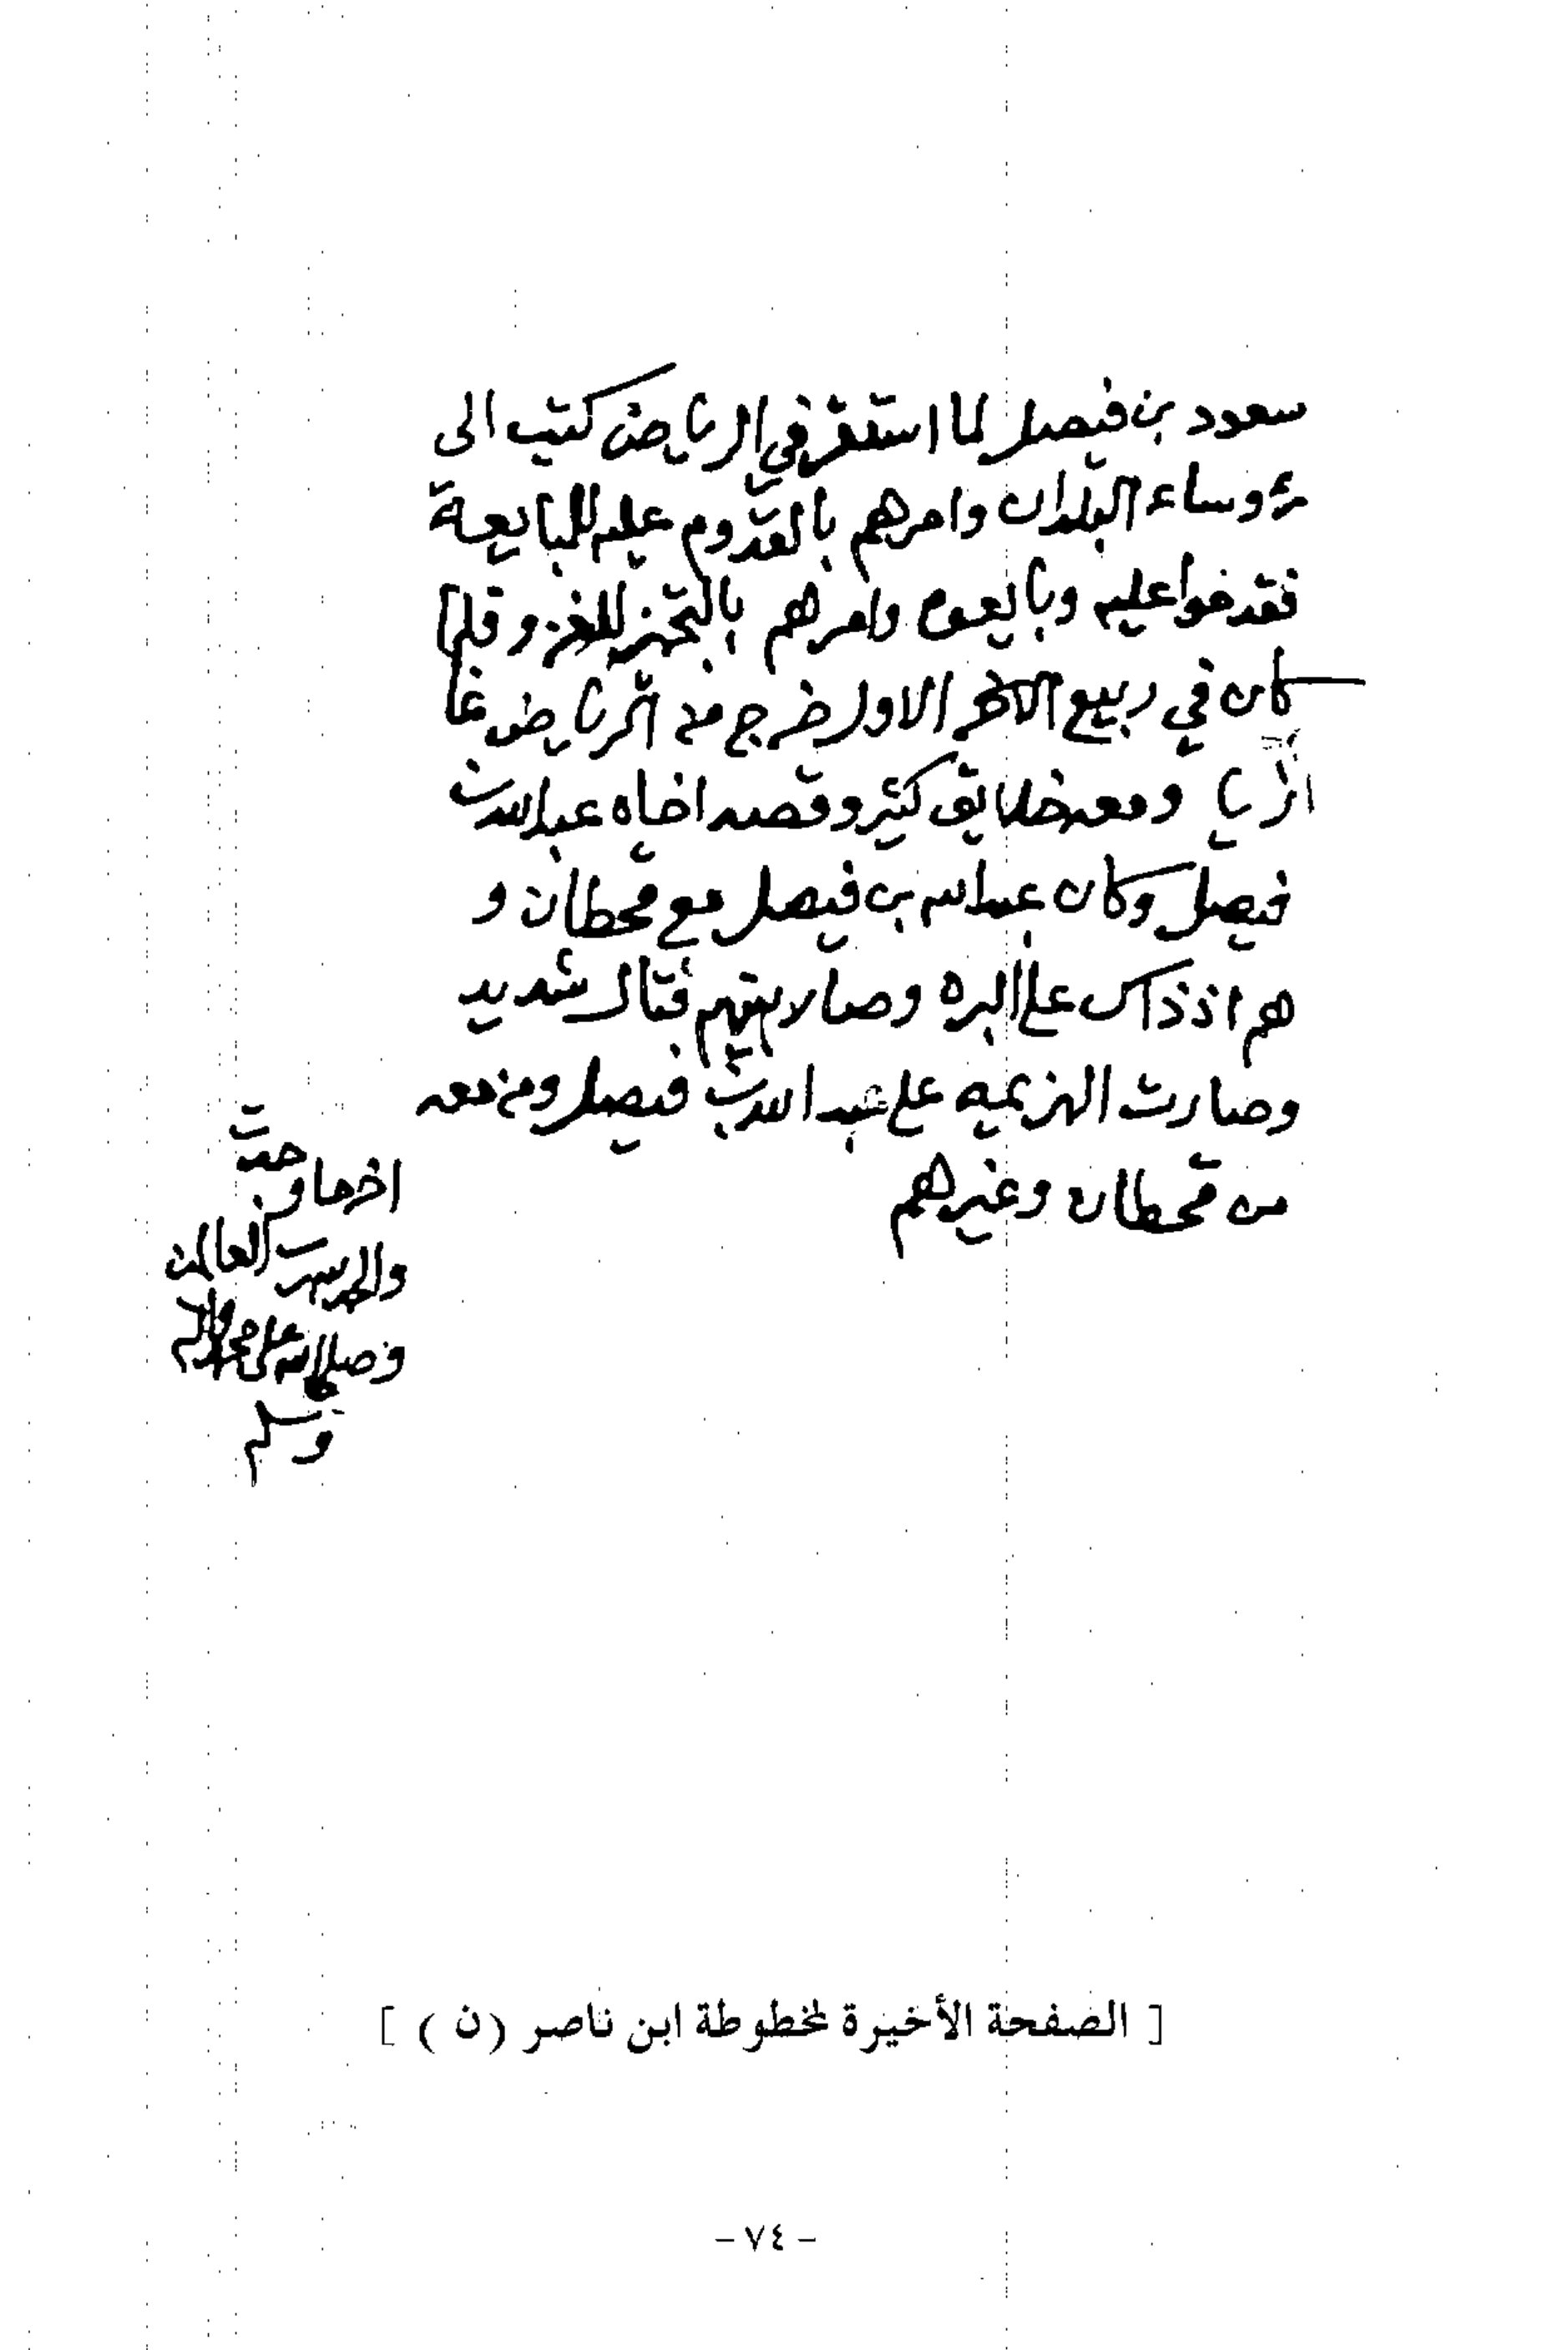 سعود بن فيصل لما استقر في الرياض كتب الى
رءوساء البلدان وامرهم بالقدوم عليه للمبايعة
فقدموا عليه وبايعوه وامرهم بالتجهز للغزو فلما
كان في ربيع الاول خرج من الرياض غا
ازيا ومعه خلايق كثير وقصد اخاه عبدالله بن
فيصل وكان عبدالله بن فيصل مع قحطان و
هم اذ ذاك على البره وصار بينهم قتال شديد
وصارت الهزيمه على عبدالله بن فيصل ومن معه
من قحطان وغيرهم
اخر ما وجدت
والحمد لله رب العالمين
وصلى الله على محمد واله
وسلم
[ الصفحة الأخيرة لمخطوطة ابن ناصر (ن) ]
- ٧٤ -